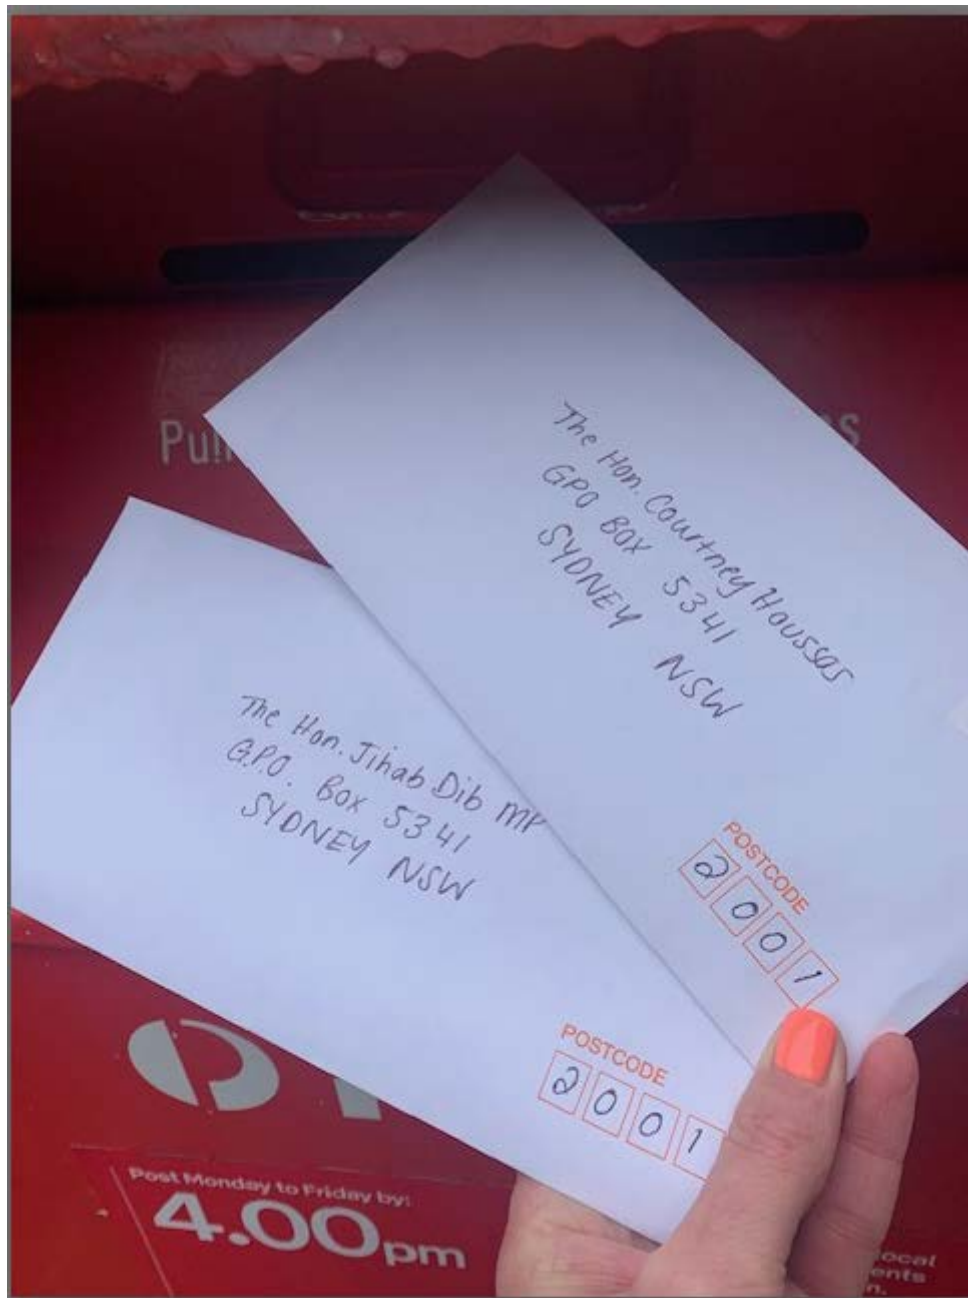 The Hon. Courtney Houssos
GPO BOX 5341
SYDNEY NSW
POSTCODE
2001
The Hon. Jihab Dib MP
G.P.O. Box 5341
SYDNEY NSW
POSTCODE
2001
Post Monday to Friday by:
4.00pm